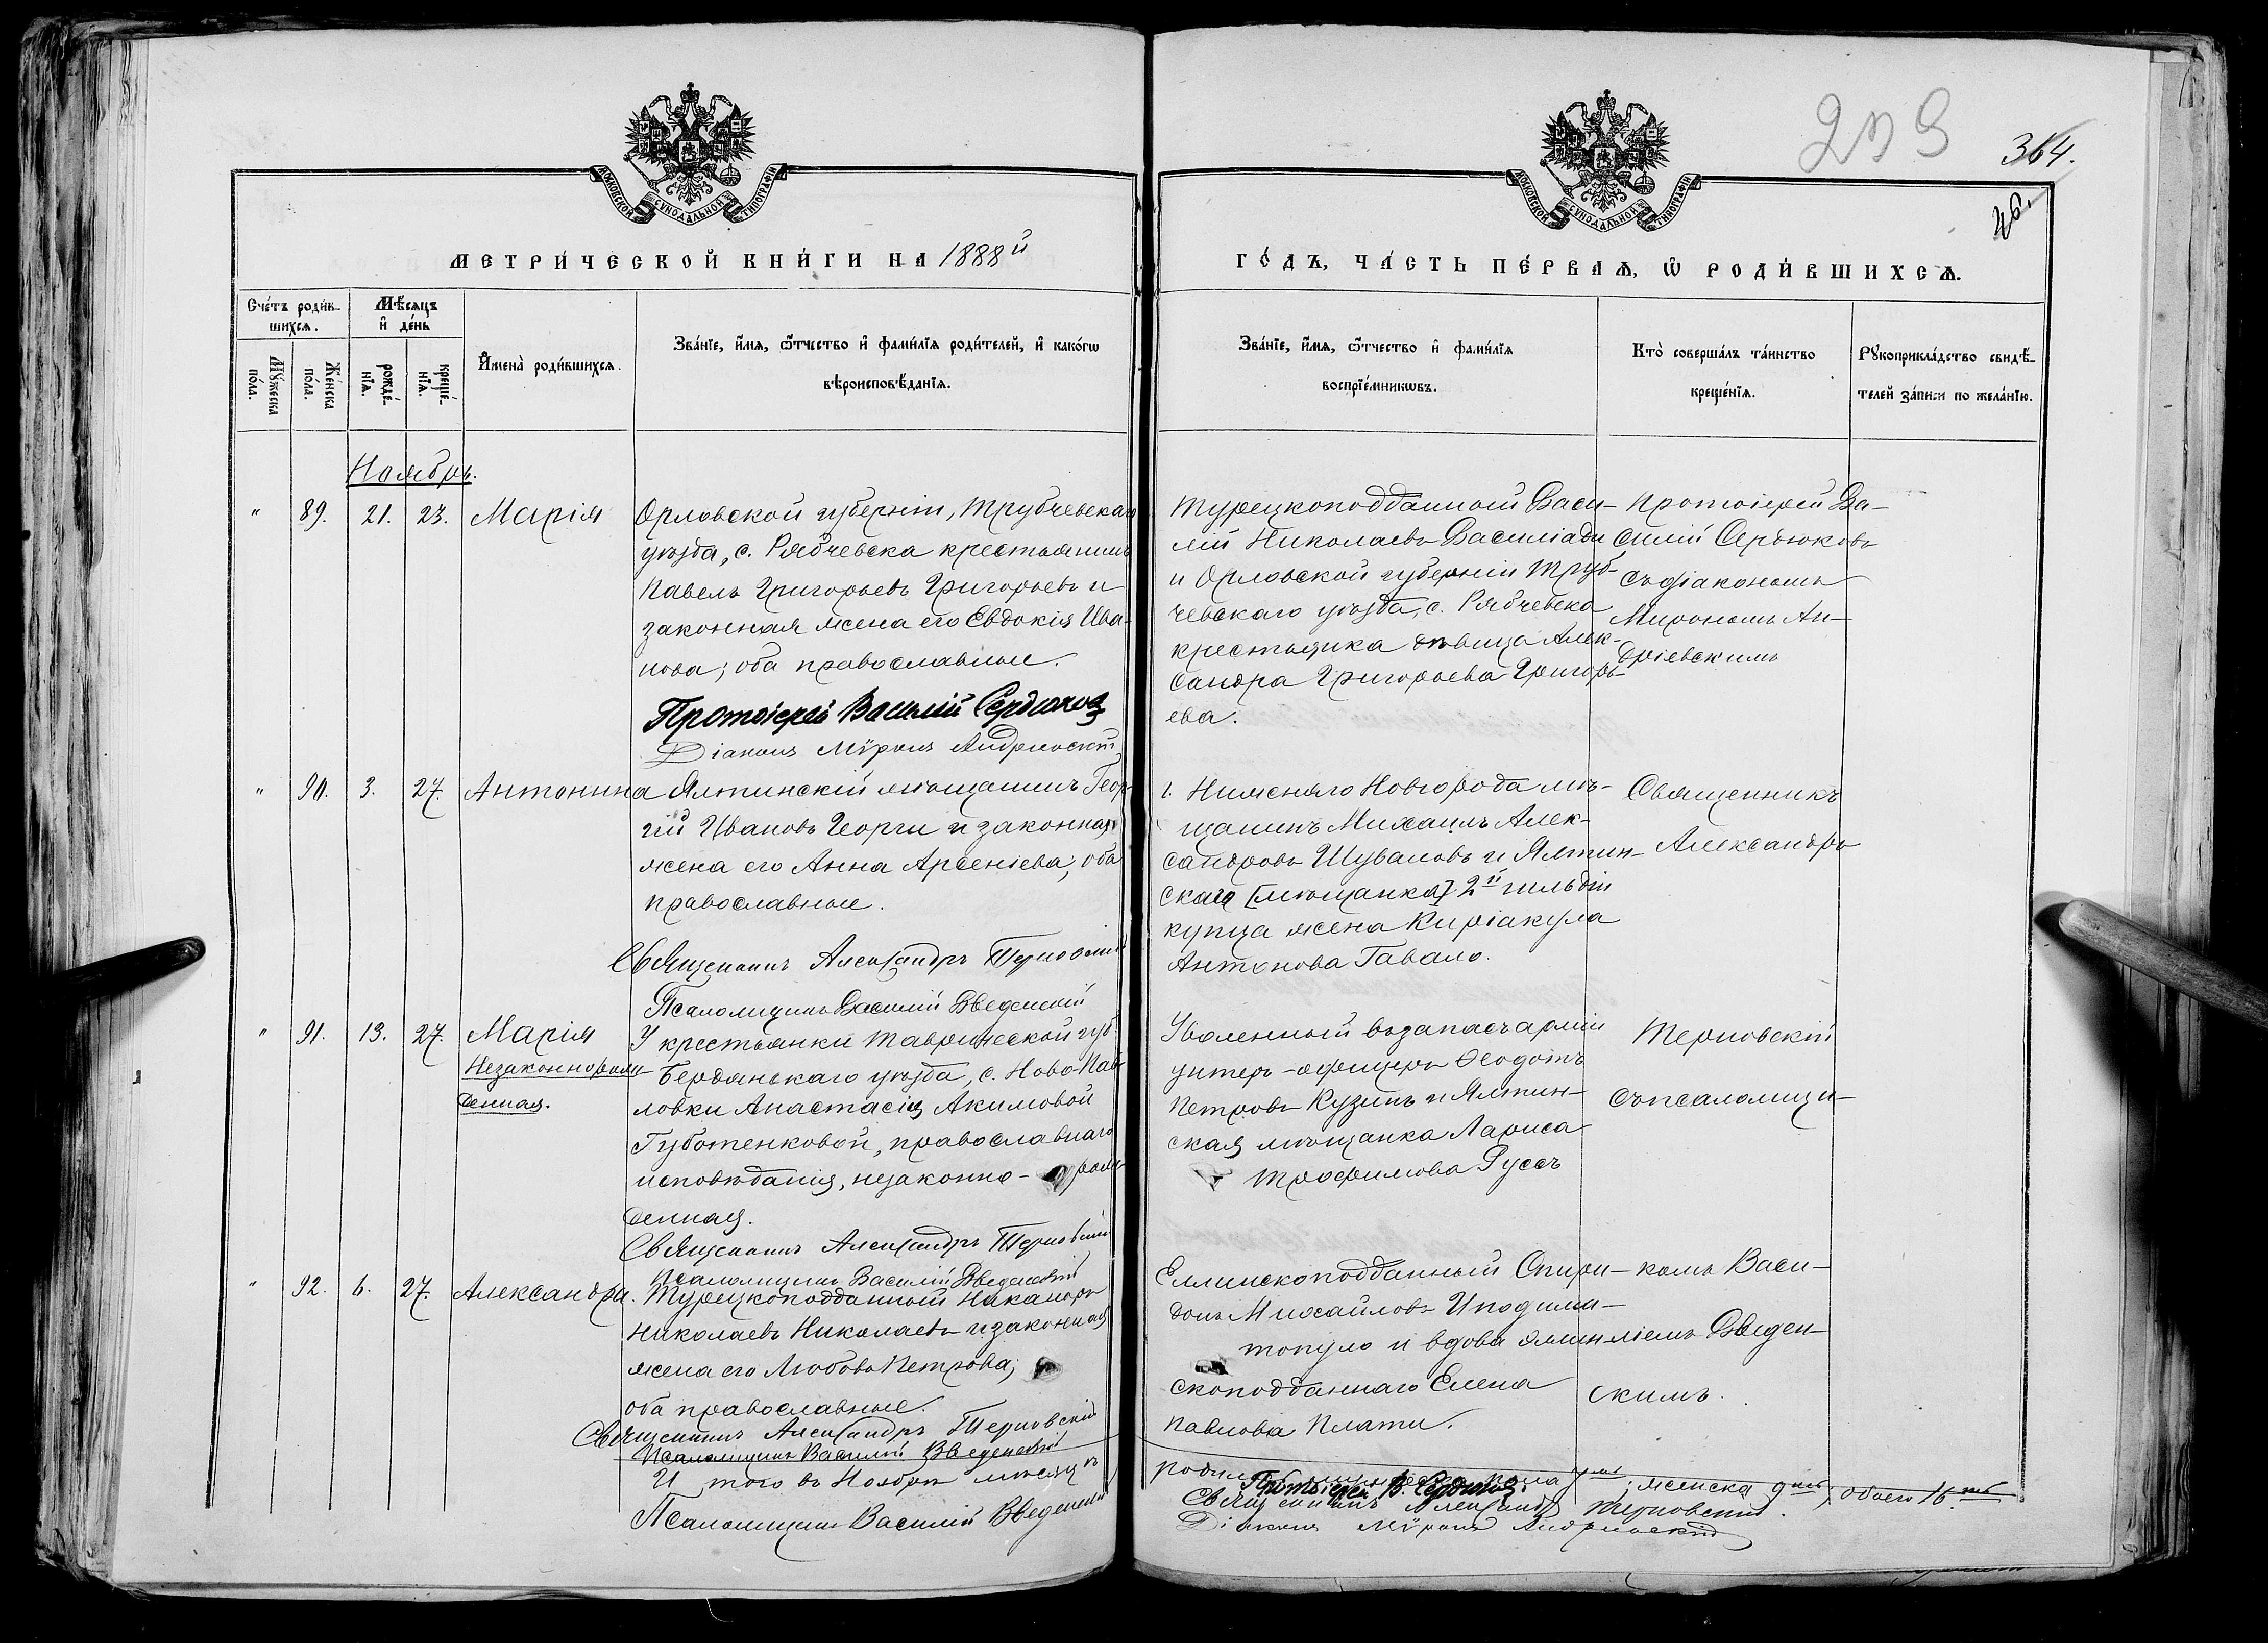 239
364.
46.
МОСКОВСКОЙ СѴНОДАЛЬНОЙ ТИПОГРАФІИ
МОСКОВСКОЙ СѴНОДАЛЬНОЙ ТИПОГРАФІИ
МЕТРИ́ЧЕСКОЙ КНИ́ГИ НА 1888й
ГО́ДЪ, ЧА́СТЬ ПЕ́РВАѦ, Ѡ РОДИ́ВШИХСѦ.
Сче́тъ роди́в-
шихсѧ.
Мꙋ́жеска
по́ла.
Же́нска
по́ла.
Мѣ́сѧцъ
и҆ де́нь
рожде́-
нїѧ.
креще́-
нїѧ.
И҆мена̀ роди́вшихсѧ.
Зва́нїе, и҆́мѧ, ѻ҆́тчество и҆ фами́лїѧ роди́телей, и҆ како́гѡ
вѣроисповѣ́данїѧ.
Зва́нїе, и҆́мѧ, ѻ҆́тчество и҆ фами́лїѧ
воспрїе́мникѡвъ.
Кто̀ соверша́лъ та́инство
креще́нїѧ.
Рꙋкоприкла́дство свидѣ́-
телей за́писи по жела́нїю.
Ноябрь.
" 89. 21. 23. Марія
Орловской губерніи, Трубчевскаго
уѣзда, с. Рябчевска крестьянинъ
Павелъ Григорьевъ Григорьевъ и
законная жена его Евдокія Ива-
нова; оба православные.
Протоіерей Василій Сердюковъ
Діаконъ Мѵронъ Андріевскій
Турецкоподданный Васи-
лій Николаевъ Василіади
и Орловской губерніи Труб-
чевскаго уѣзда, с. Рябчевска
крестьянка дѣвица Алек-
сандра Григорьева Григорь-
ева.
Протоіерей Ва-
силій Сердюковъ
съ діакономъ
Мирономъ Ан-
дріевскимъ
" 90. 3. 27. Антонина
Ялтинскій мѣщанинъ Геор-
гій Ивановъ Георги и законная
жена его Анна Арсеніева; оба
православные.
Священникъ Александръ Терновскій
Псаломщикъ Василій Введенскій
г. Нижняго Новгорода мѣ-
щанинъ Михаилъ Алек-
сандровъ Шуваловъ и Ялтин-
скаго [мѣщанка] 2й гильдіи
купца жена Киріакула
Антонова Гавало.
Священникъ
Александръ
" 91. 13. 27. Марія
Незаконнорож-
денная.
У крестьянки Таврической губ.
Бердянскаго уѣзда, с. Ново-Пав-
ловки Анастасія Акимовой
Губотенковой, православнаго
исповѣданія, незаконно- рож-
денная.
Священникъ Александръ Терновскій
Псаломщикъ Василій Введенскій
Уволенный въ запасъ арміи
унтеръ-офицеръ Ѳеодотъ
Петровъ Кузинъ и Ялтин-
ская мѣщанка Лариса
Трофимова Руссъ
Терновскій
съ псаломщи-
" 92. 6. 27. Александра.
Турецкоподданный Никаноръ
Николаевъ Николаевъ и законная
жена его Любовь Петрова;
оба православные.
Священникъ Александръ Терновскій
Псаломщикъ Василій Введенскій
Еллинскоподданный Спири-
донъ Михайловъ Иподима-
топуло и вдова еллин-
скоподданнаго Елена
Павлова Плати.
комъ Васи-
ліемъ Введен-
скимъ.
И того въ Ноябрѣ мѣсяцѣ
пола женска 9ть, обоего 16ть
Псаломщикъ Василій Введенскій
Протоіерей В. Сердюковъ
Священникъ Александръ Терновскій.
Діаконъ Мѵронъ Андріевскій